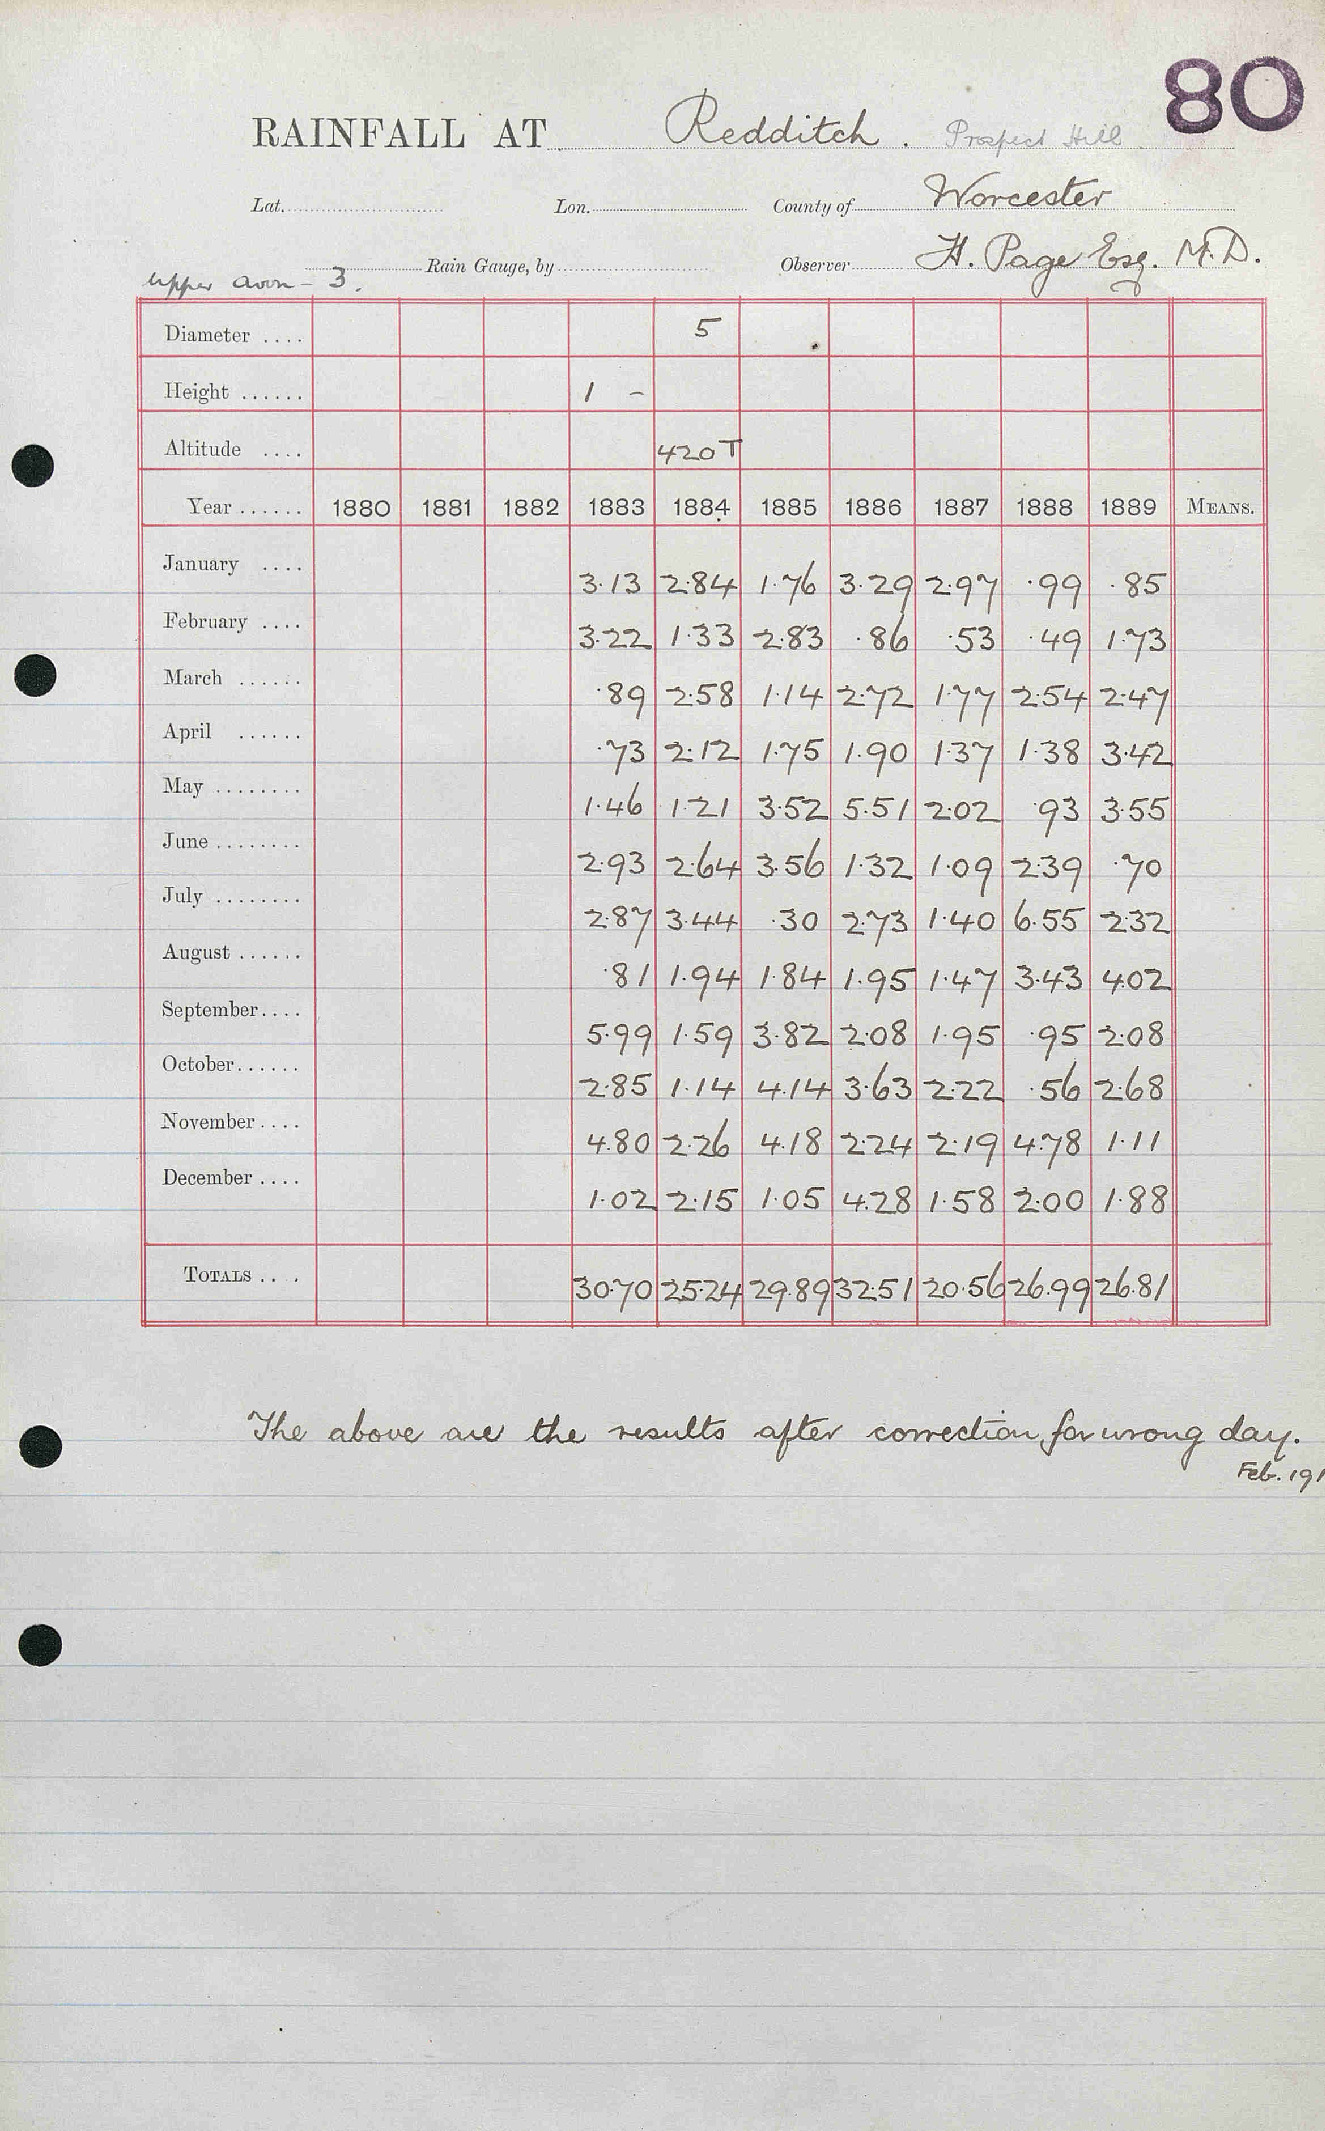 80
RAINFALL AT Redditch. Prospect Hill
Lat. Lon. County of Worcester
Rain Gauge, by Observer H. Page Esq. M.D.
Upper Avon - 3.
Diameter .... 5
Height ...... 1 -
Altitude .... 420 T
Year ...... 1880 1881 1882 1883 1884 1885 1886 1887 1888 1889 MEANS.
January .... 3.13 2.84 1.76 3.29 2.97 .99 .85
February .... 3.22 1.33 2.83 .86 .53 .49 1.73
March ...... .89 2.58 1.14 2.72 1.77 2.54 2.47
April ...... .73 2.12 1.75 1.90 1.37 1.38 3.42
May ........ 1.46 1.21 3.52 5.51 2.02 .93 3.55
June ........ 2.93 2.64 3.56 1.32 1.09 2.39 .70
July ........ 2.87 3.44 .30 2.73 1.40 6.55 2.32
August ...... .81 1.94 1.84 1.95 1.47 3.43 4.02
September.... 5.99 1.59 3.82 2.08 1.95 .95 2.08
October...... 2.85 1.14 4.14 3.63 2.22 .56 2.68
November.... 4.80 2.26 4.18 2.24 2.19 4.78 1.11
December.... 1.02 2.15 1.05 4.28 1.58 2.00 1.88
TOTALS ... 30.70 25.24 29.89 32.51 20.56 26.99 26.81
The above are the results after correction for wrong day.
Feb. 191